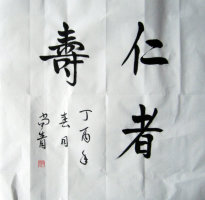 仁者
壽
丁酉年
春月